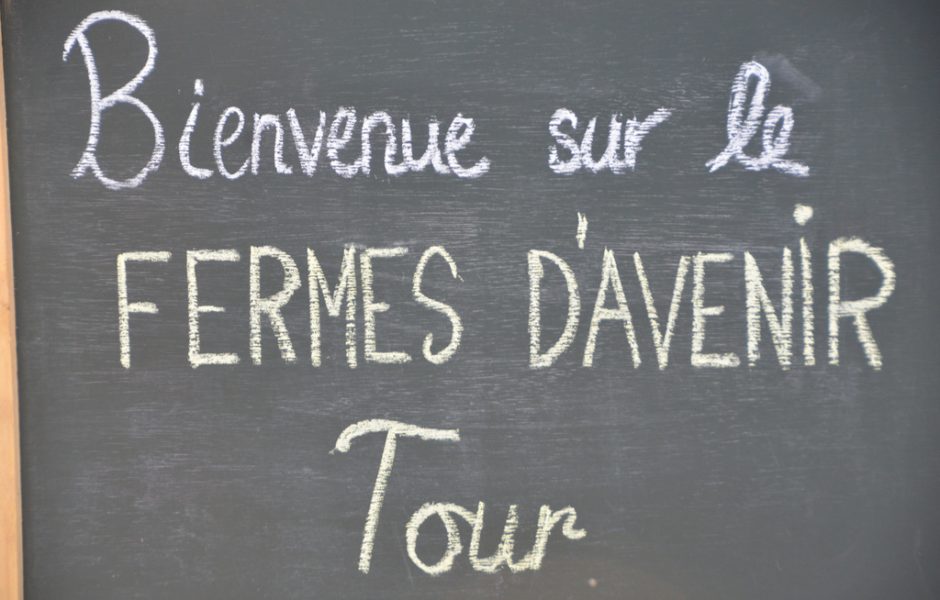 Bienvenue sur le
FERMES D'AVENiR
Tour